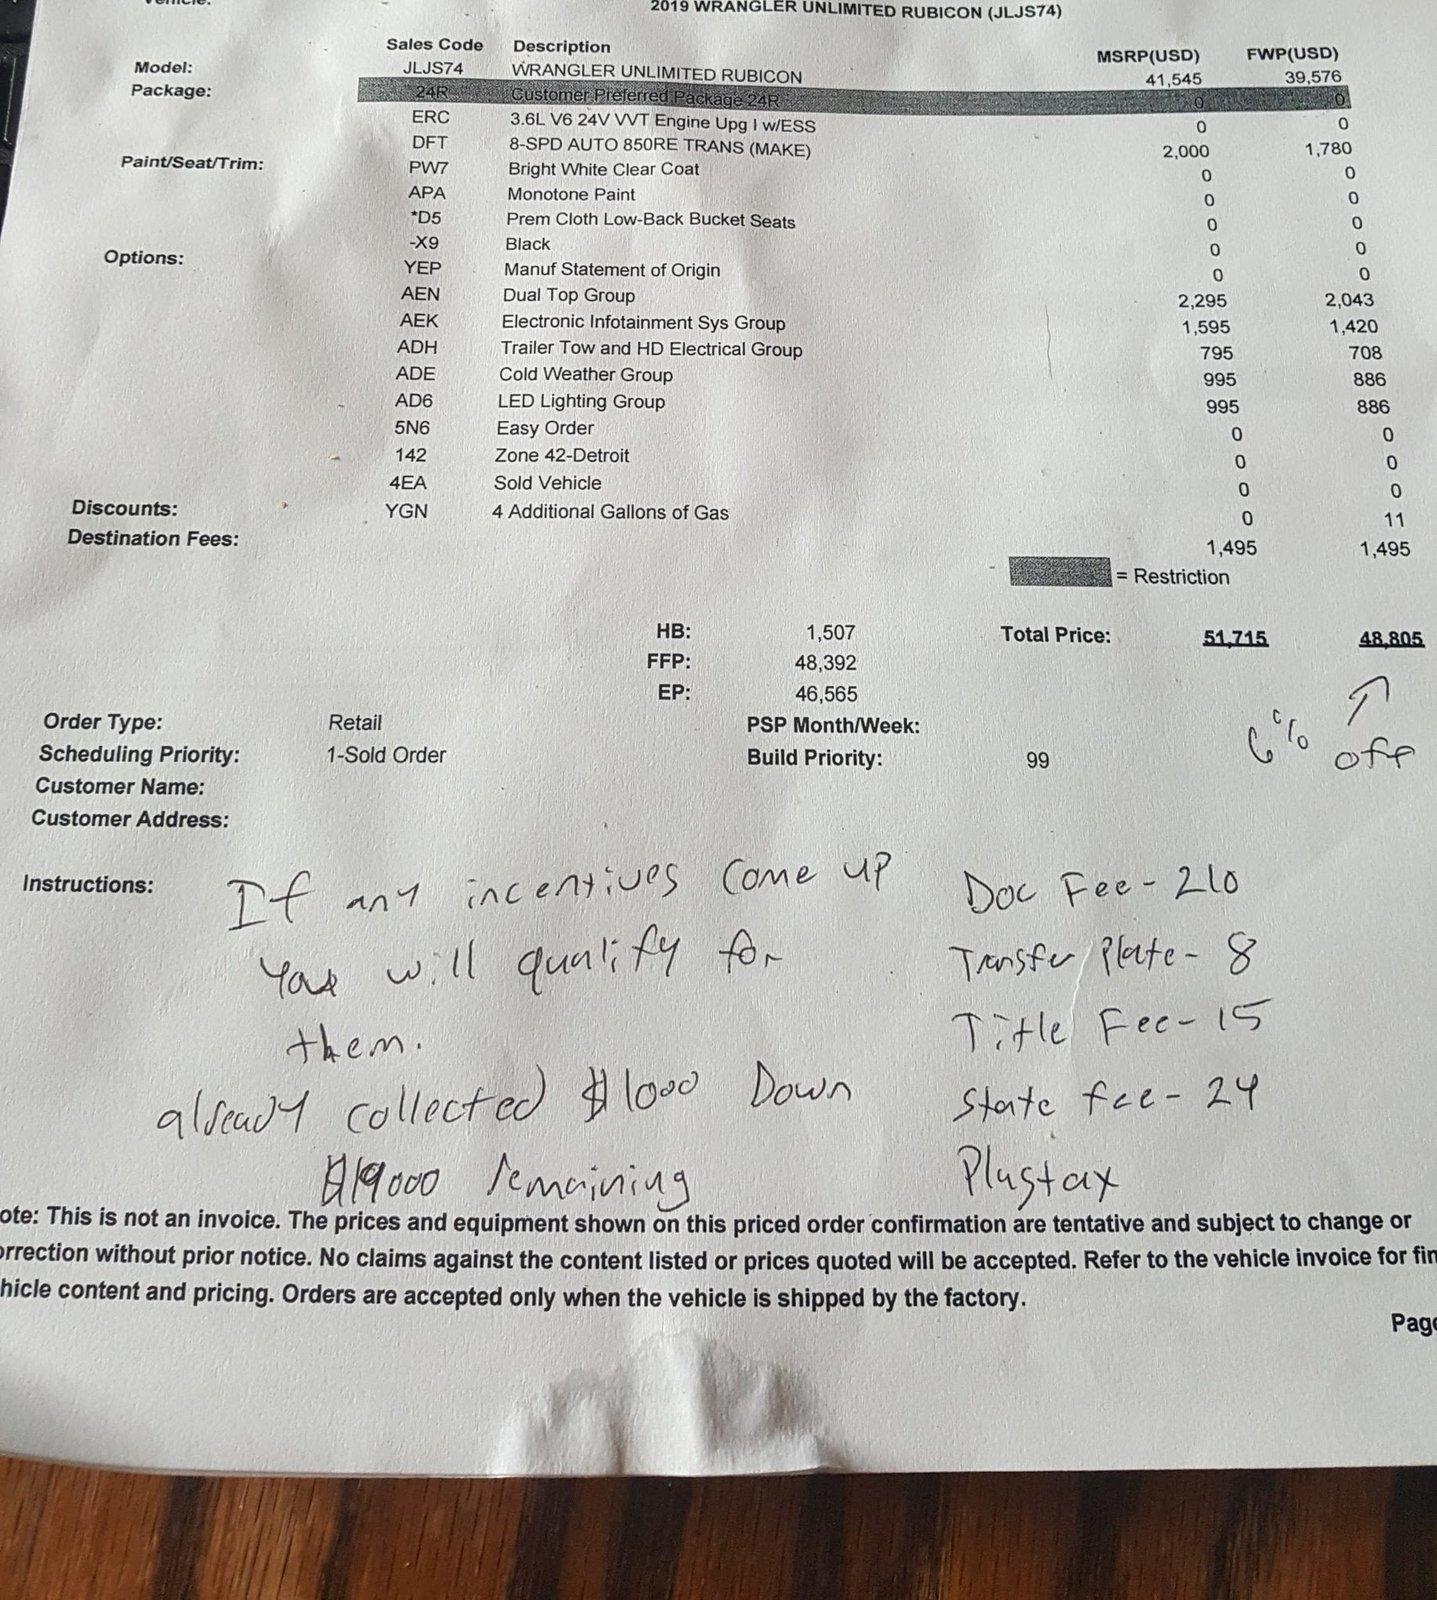 2019 WRANGLER UNLIMITED RUBICON (JLJS74)
Sales Code Description MSRP(USD) FWP(USD)
Model: JLJS74 WRANGLER UNLIMITED RUBICON 41,545 39,576
Package: 24R Customer Preferred Package 24R 0 0
ERC 3.6L V6 24V VVT Engine Upg I w/ESS 0 0
DFT 8-SPD AUTO 850RE TRANS (MAKE) 2,000 1,780
Paint/Seat/Trim: PW7 Bright White Clear Coat 0 0
APA Monotone Paint 0 0
*D5 Prem Cloth Low-Back Bucket Seats 0 0
-X9 Black 0 0
Options: YEP Manuf Statement of Origin 0 0
AEN Dual Top Group 2,295 2,043
AEK Electronic Infotainment Sys Group 1,595 1,420
ADH Trailer Tow and HD Electrical Group 795 708
ADE Cold Weather Group 995 886
AD6 LED Lighting Group 995 886
5N6 Easy Order 0 0
142 Zone 42-Detroit 0 0
4EA Sold Vehicle 0 0
Discounts: YGN 4 Additional Gallons of Gas 0 11
Destination Fees: 1,495 1,495
= Restriction
HB: 1,507 Total Price: 51,715 48,805
FFP: 48,392
EP: 46,565
6% off
Order Type: Retail PSP Month/Week:
Scheduling Priority: 1-Sold Order Build Priority: 99
Customer Name:
Customer Address:
Instructions:
If any incentives come up
You will qualify for
them.
already collected $1000 Down
$19000 remaining
Doc Fee - 210
Transfer Plate - 8
Title Fee - 15
State fee - 24
Plus tax
ote: This is not an invoice. The prices and equipment shown on this priced order confirmation are tentative and subject to change or
orrection without prior notice. No claims against the content listed or prices quoted will be accepted. Refer to the vehicle invoice for fin
hicle content and pricing. Orders are accepted only when the vehicle is shipped by the factory.
Page